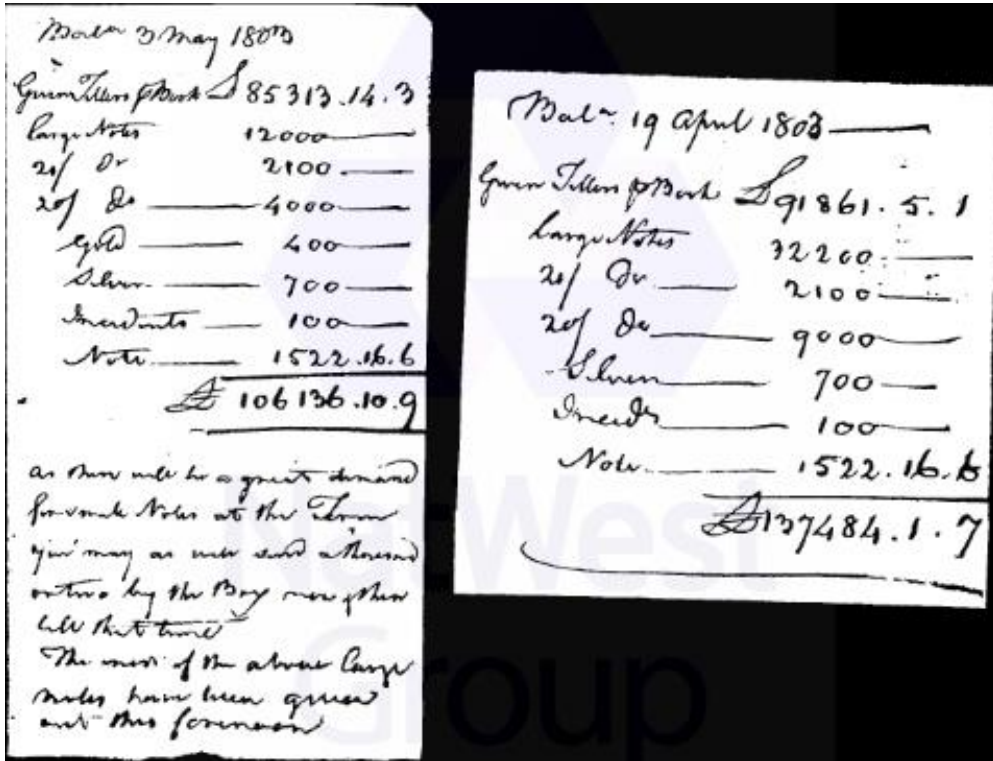 Balce 3 May 1803
Given Tellers p Book £ 85313.14.3
Large Notes 12000
21/ Do 2100
20/ Do 4000
Gold 400
Silver 700
Incidents 100
Note 1522.16.6
£ 106136.10.9
as there will be a great demand
for small Notes at the Term
you may as well send a thousand
by the Boy now & then
till that time
The most of the above large
notes have been given
out this forenoon
Balce 19 April 1803
Given Tellers p Book £ 91861.5.1
Large Notes 32200
21/ Do 2100
20/ Do 9000
Silver 700
Incids 100
Note 1522.16.6
£ 137484.1.7
NatWest
Group